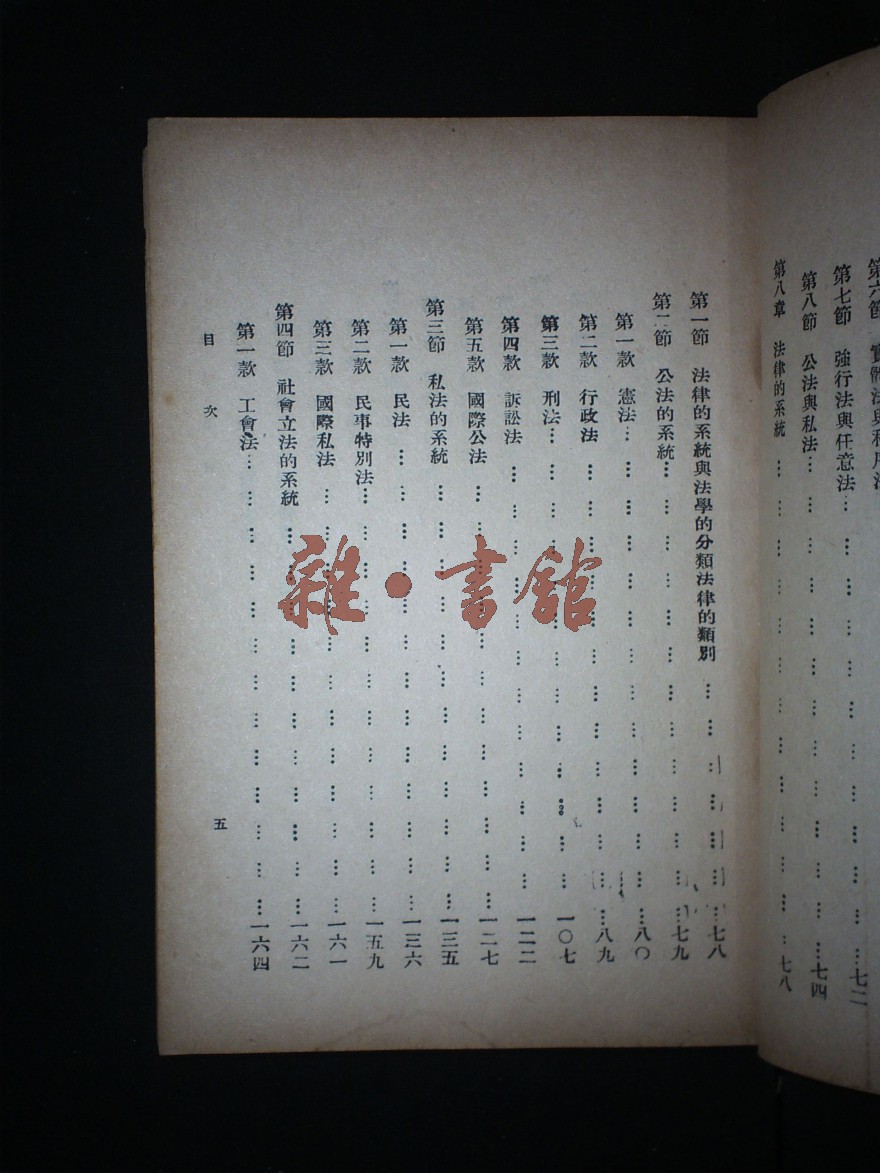 第六節 實體法與
第七節 強行法與任意法………七二
第八節 公法與私法………七四
第八章 法律的系統………七八
第一節 法律的系統與法學的分類法律的類別………七八
第二節 公法的系統………七九
第一款 憲法………八〇
第二款 行政法………八九
第三款 刑法………一〇七
第四款 訴訟法………一二二
第五款 國際公法………一二七
第三節 私法的系統………一三五
第一款 民法………一三六
第二款 民事特別法………一五九
第三款 國際私法………一六一
第四節 社會立法的系統………一六二
第一款 工會法………一六四
目次 五
雜·書館